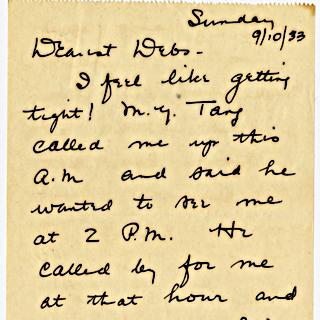 Sunday
9/10/33
Dearest Debs-
I feel like getting
tight! M.Y. Tang
called me up this
A.M and said he
wanted to see me
at 2 P.M. He
called by for me
at that hour and